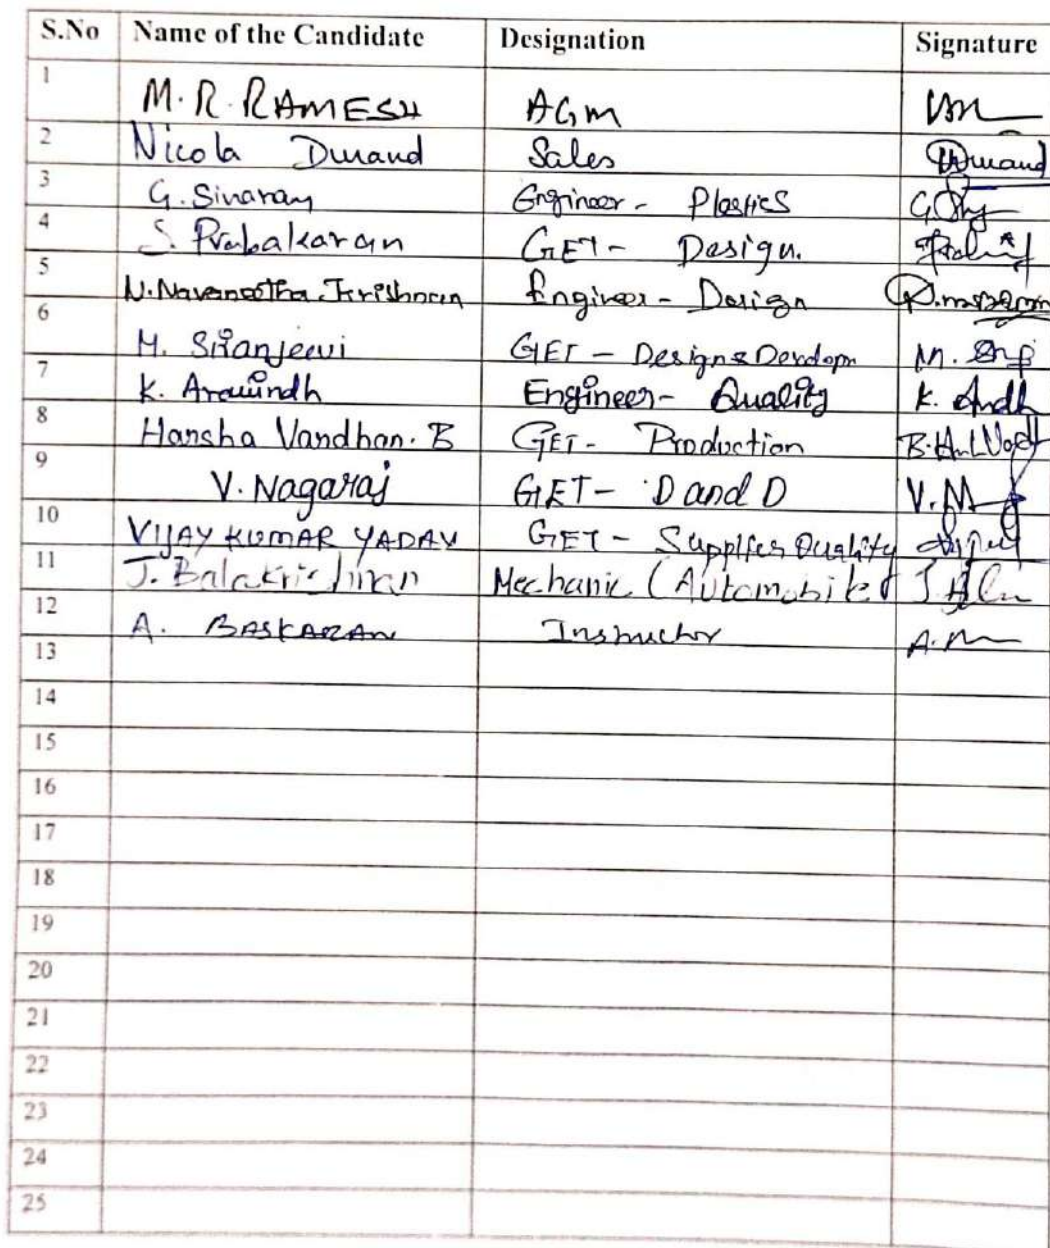 S.No Name of the Candidate Designation Signature
1 M.R. RAMESH AGM
2 Nicola Durand Sales Durand
3 G. Sivaram Engineer - Plastics
4 S. Prabakaran GET - Design.
5 N. Navaneetha Krishnan Engineer - Design
6 M. Siranjeevi GET - Design & Developm
7 K. Aravindh Engineer - Quality
8 Harsha Vardhan. B GET - Production
9 V. Nagaraj GET - D and D
10 VIJAY KUMAR YADAV GET - Supplier Quality
11 J. Balakrishnan Mechanic (Automobile)
12 A. BASKARAN Instructor
13
14
15
16
17
18
19
20
21
22
23
24
25